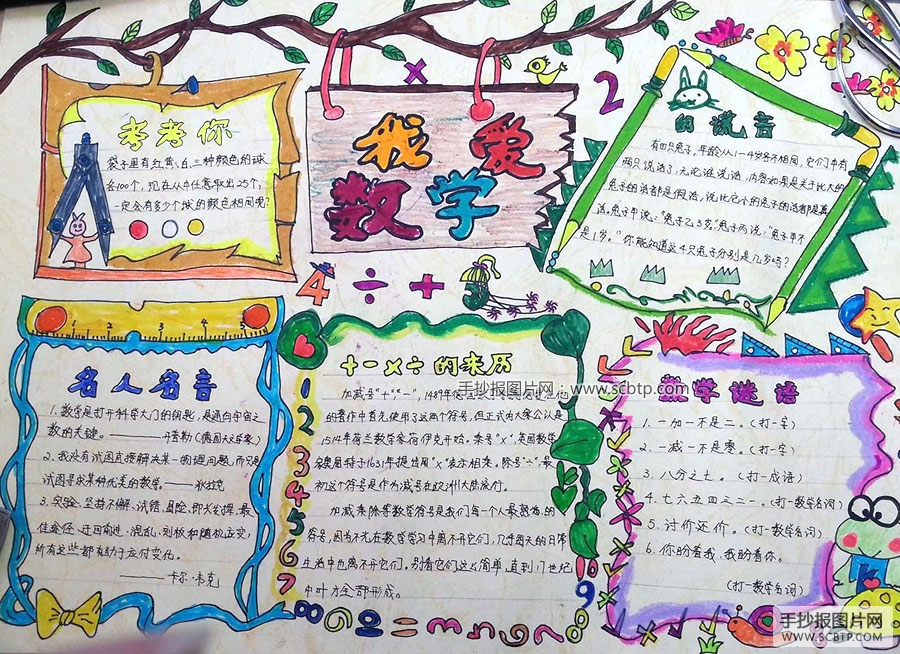 考考你
袋子里有红、黄、白三种颜色的球
各100个，现在从中任意取出25个，
一定会有多少个球的颜色相同呢？
×
我爱
数学
2
的谎言
有四只兔子，年龄从1-4岁各不相同，它们中有
两只说话了，无论谁说话，内容如果是关于比大的
兔子的话都是假话，说比它小的兔子的话都是真
话。兔子甲说：“兔子乙3岁。”兔子丙说：“兔子甲不
是1岁。”你能知道这4只兔子分别是几岁吗？
4 ÷ +
1 2 3 4 5
名人名言
1. 数学是打开科学大门的钥匙，是通向宇宙之
数的关键。
2. 我没有试图直接解决某一物理问题，而只是
试图寻求某种优美的数学。——狄拉克
3. 实验、坚持不懈、试错、冒险、即兴发挥、最
佳途径、迂回前进、混乱、刻板和随机应变，
所有这些都有助于应付变化。
——卡尔·韦克
+-×÷的来历
加减号“+”“-”，1489年
的著作中首先使用了这两个符号，但正式为大家公认是
1514年荷兰数学家荷伊克开始。乘号“×”，英国数学
家奥屈特于1631年提出用“×”表示相乘。除号“÷”最
初这个符号是作为减号在欧洲大陆流行。
加减乘除等数学符号是我们每一个人最熟悉的
符号，因为不光在数学学习中离不开它们，几乎每天的日常
生活中也离不开它们。别看它们这么简单，直到17世纪
中叶才全部形成。
1
2
3
4
5
6
7
8
10
9
8
手抄报图片网：www.scbtp.com
数学谜语
1. 一加一不是二。（打一字）
2. 一减一不是零。（打一字）
3. 八分之七。（打一成语）
4. 七六五四三二一。（打一数学名词）
5. 讨价还价。（打一数学名词）
6. 你盼着我，我盼着你。
（打一数学名词）
手抄报图片网
WWW.SCBTP.COM